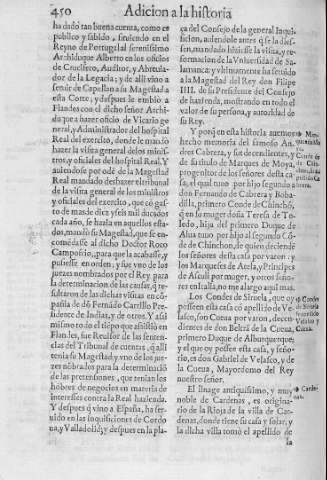 450 Adicion a la historia
ha dado tan buena cuenta, como es
publico y sabido, siruiendo en el
Reyno de Portugal al serenissimo
Archiduque Alberto en los oficios
de Crucifero, Auditor, y Abreuia-
dor de la Legacia; y de alli vino a
seruir de Capellan a su Magestad a
esta Corte; y despues le embio a
Flandes con el dicho señor Archi-
duque a hazer oficio de Vicario ge-
neral, y Administrador del hospital
Real del exercito, donde le mandò
hazer la visita general de los minis-
tros, y oficiales del hospital Real. Y
auiendose por ode la Magestad
Real mandado deshazer el tribunal
de la visita general de los ministros
y oficiales del exercito, que cò gas-
to de mas de diez y seis mil ducados
cada año, se hazia en aquellos esta-
dos, mandò su Magestad, que se en-
comẽdasse al dicho Doctor Roco
Campofrio, para que la acabasse, y
pusiesse en orden, y fue vno de los
juezes nombrados por el Rey para
la determinacion de las causas, q̃ re-
sultaron de las dichas visitas en cõ-
pañia de dõ Fernãdo Carrillo Pre-
sidente de Indias, y de otros. Y assi
mismo todo el tiẽpo que assistiò en
Flandes, fue Reuisor de las senten-
cias del Tribunal de cuentas, q̃ alli
tenia su Magestad, y vno de los jue-
zes nõbrados para la determinaciõ
de las pretensiones, que tenian los
hõbres de negocios en materia de
interesses contra la Real hazienda.
Y despues q̃ vino a España, ha ser-
uido en las Inquisiciones de Cordo
ua, y Valladolid; y despues en la pla-
ça del Consejo de la general Inqui-
sicion, adonde antes q̃ se la dies-
sen, mandado hiziesse la visita, y re-
formacion de la Vniuersidad de Sa-
lamanca: y vltimamente fue seruido
a la Magestad del Rey don Filipe
IIII. de su Presidente del Consejo
de hazienda, mostrando en todo el
valor de su persona, y autoridad de
su Rey.
Y porq̃ en esta historia auemos
hecho memoria del famoso An-
dres Cabrera, y sus decendientes, y
de su titulo de Marques de Moya,
progenitor de los señores desta ca
sa, el qual tuuo por hijo segundo a
don Fernando de Cabrera y Boba-
dilla, primero Conde de Chinchõ,
q̃ en su muger doña Teresa de To-
ledo, hija del primero Duque de
Alua tuuo por hijo al segundo Cõ-
de de Chinchon, de quien deciendẽ
los señores desta casa por varon: y
los Marqueses de Arela, y Principes
de Asculi por muger, y otros seño-
res en Italia, no me alargo aqui mas.
Los Condes de Siruela, que oy
posseen esta casa cõ apellido de Ve-
lasco, son Cueua por varon, decen-
dientes de don Beltrã de la Cueua,
primero Duque de Alburquerque;
y el que oy possee esta casa, y seño-
rio, es don Gabriel de Velasco, y de
la Cueua, Mayordomo del Rey
nuestro señor.
El linage antiquissimo, y muy
noble de Cardenas, es origina-
rio de la Rioja de la villa de Car-
denas, donde tiene su casa y solar, y
la dicha villa tomò el apellido de
la
Conde
de Siruela
Velasco y
Cueua.
Carde-
nas.